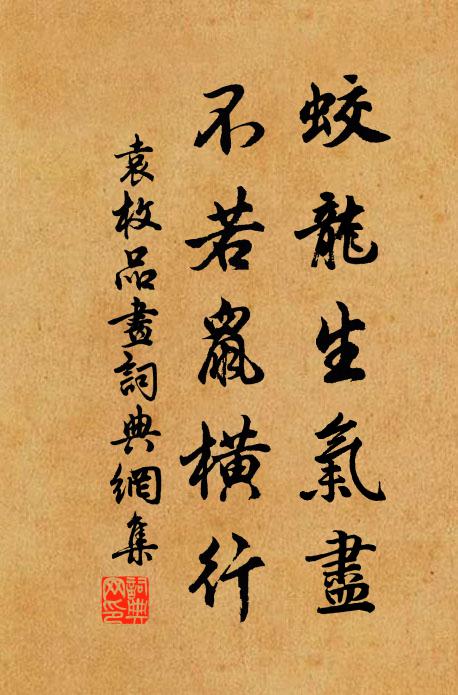 蛟龍生氣盡
不若鼠橫行
袁枚品畫詞典網集
詞典网印